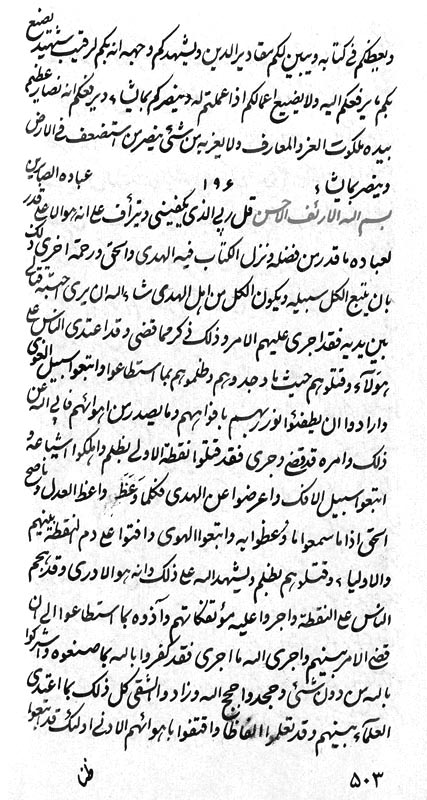 و یعظکم فی کتابه و یبین لکم مقادیر الدین و یشهدکم وجهه انه بکم لرقیب شهید یصنع
بکم ما یرفعکم الیه و لا یضیع اعمالکم اذا عملتم له و ینصرکم بما یشاء و یرفعکم انه نصار عظیم
بیده ملکوت العز و المعارف و لا یعزبه من شئ ینصر من استضعف فی الارض
و ینصر بما یشاء عباده الصابرین
۱۹۶
بسم الله الارئف الاحسن قل ربی الذی یکفینی و یترأف علی انه هو الاعلی قدر
لعباده ما قدر من فضله و نزل الکتاب فیه الهدی و الحق و رحمة اخری و لکن
بان یتبع الکل سبیله و یکون الکل من اهل الهدی شاء الله ان یری
بین یدیه فقد اجری علیهم الامر و ذلک ذکر مما قضی و قد اعتدی الناس علی
هؤلاء و قتلوهم حیث ما وجدوهم و ظلموهم بما استطاعوا و اتبعوا سبیل الغوی
و ارادوا ان یطفئوا نور ربهم بافواههم و ما یصدر من اهوائهم فابی الله عن
ذلک و امره قد قضی و جری فقد قتلوا نقطة الاولی بظلم و اهلکوا اشیاعه و
اتبعوا سبیل الافک و اعرضوا عن الهدی فکلما وعظ واعظ العدل و ناصح
الحق اذا ما سمعوا ما وعظوا به و اتبعوا الهوی و افتوا علی دم النقطة بینهم
و الاولیاء و قتلوهم بظلم و لیشهد الله علی ذلک و انه هو الادری و قد هجم
الناس علی النقطة و اجروا علیه مؤتفکاتهم و آذوه بما استطاعوا الی ان
قضی الامر بینهم و اجری الله ما اجری فقد کفروا بالله بما صنعوه و اشرکوا
بالله من دون شئ و جحدوا حجج الله و زاد و الشقی کل ذلک بما اعتدی
العلماء بینهم و قد تعلموا الفاظا و اقتفوا باهوائهم الادنی اولئک قد اتبعوا
۵۰۳